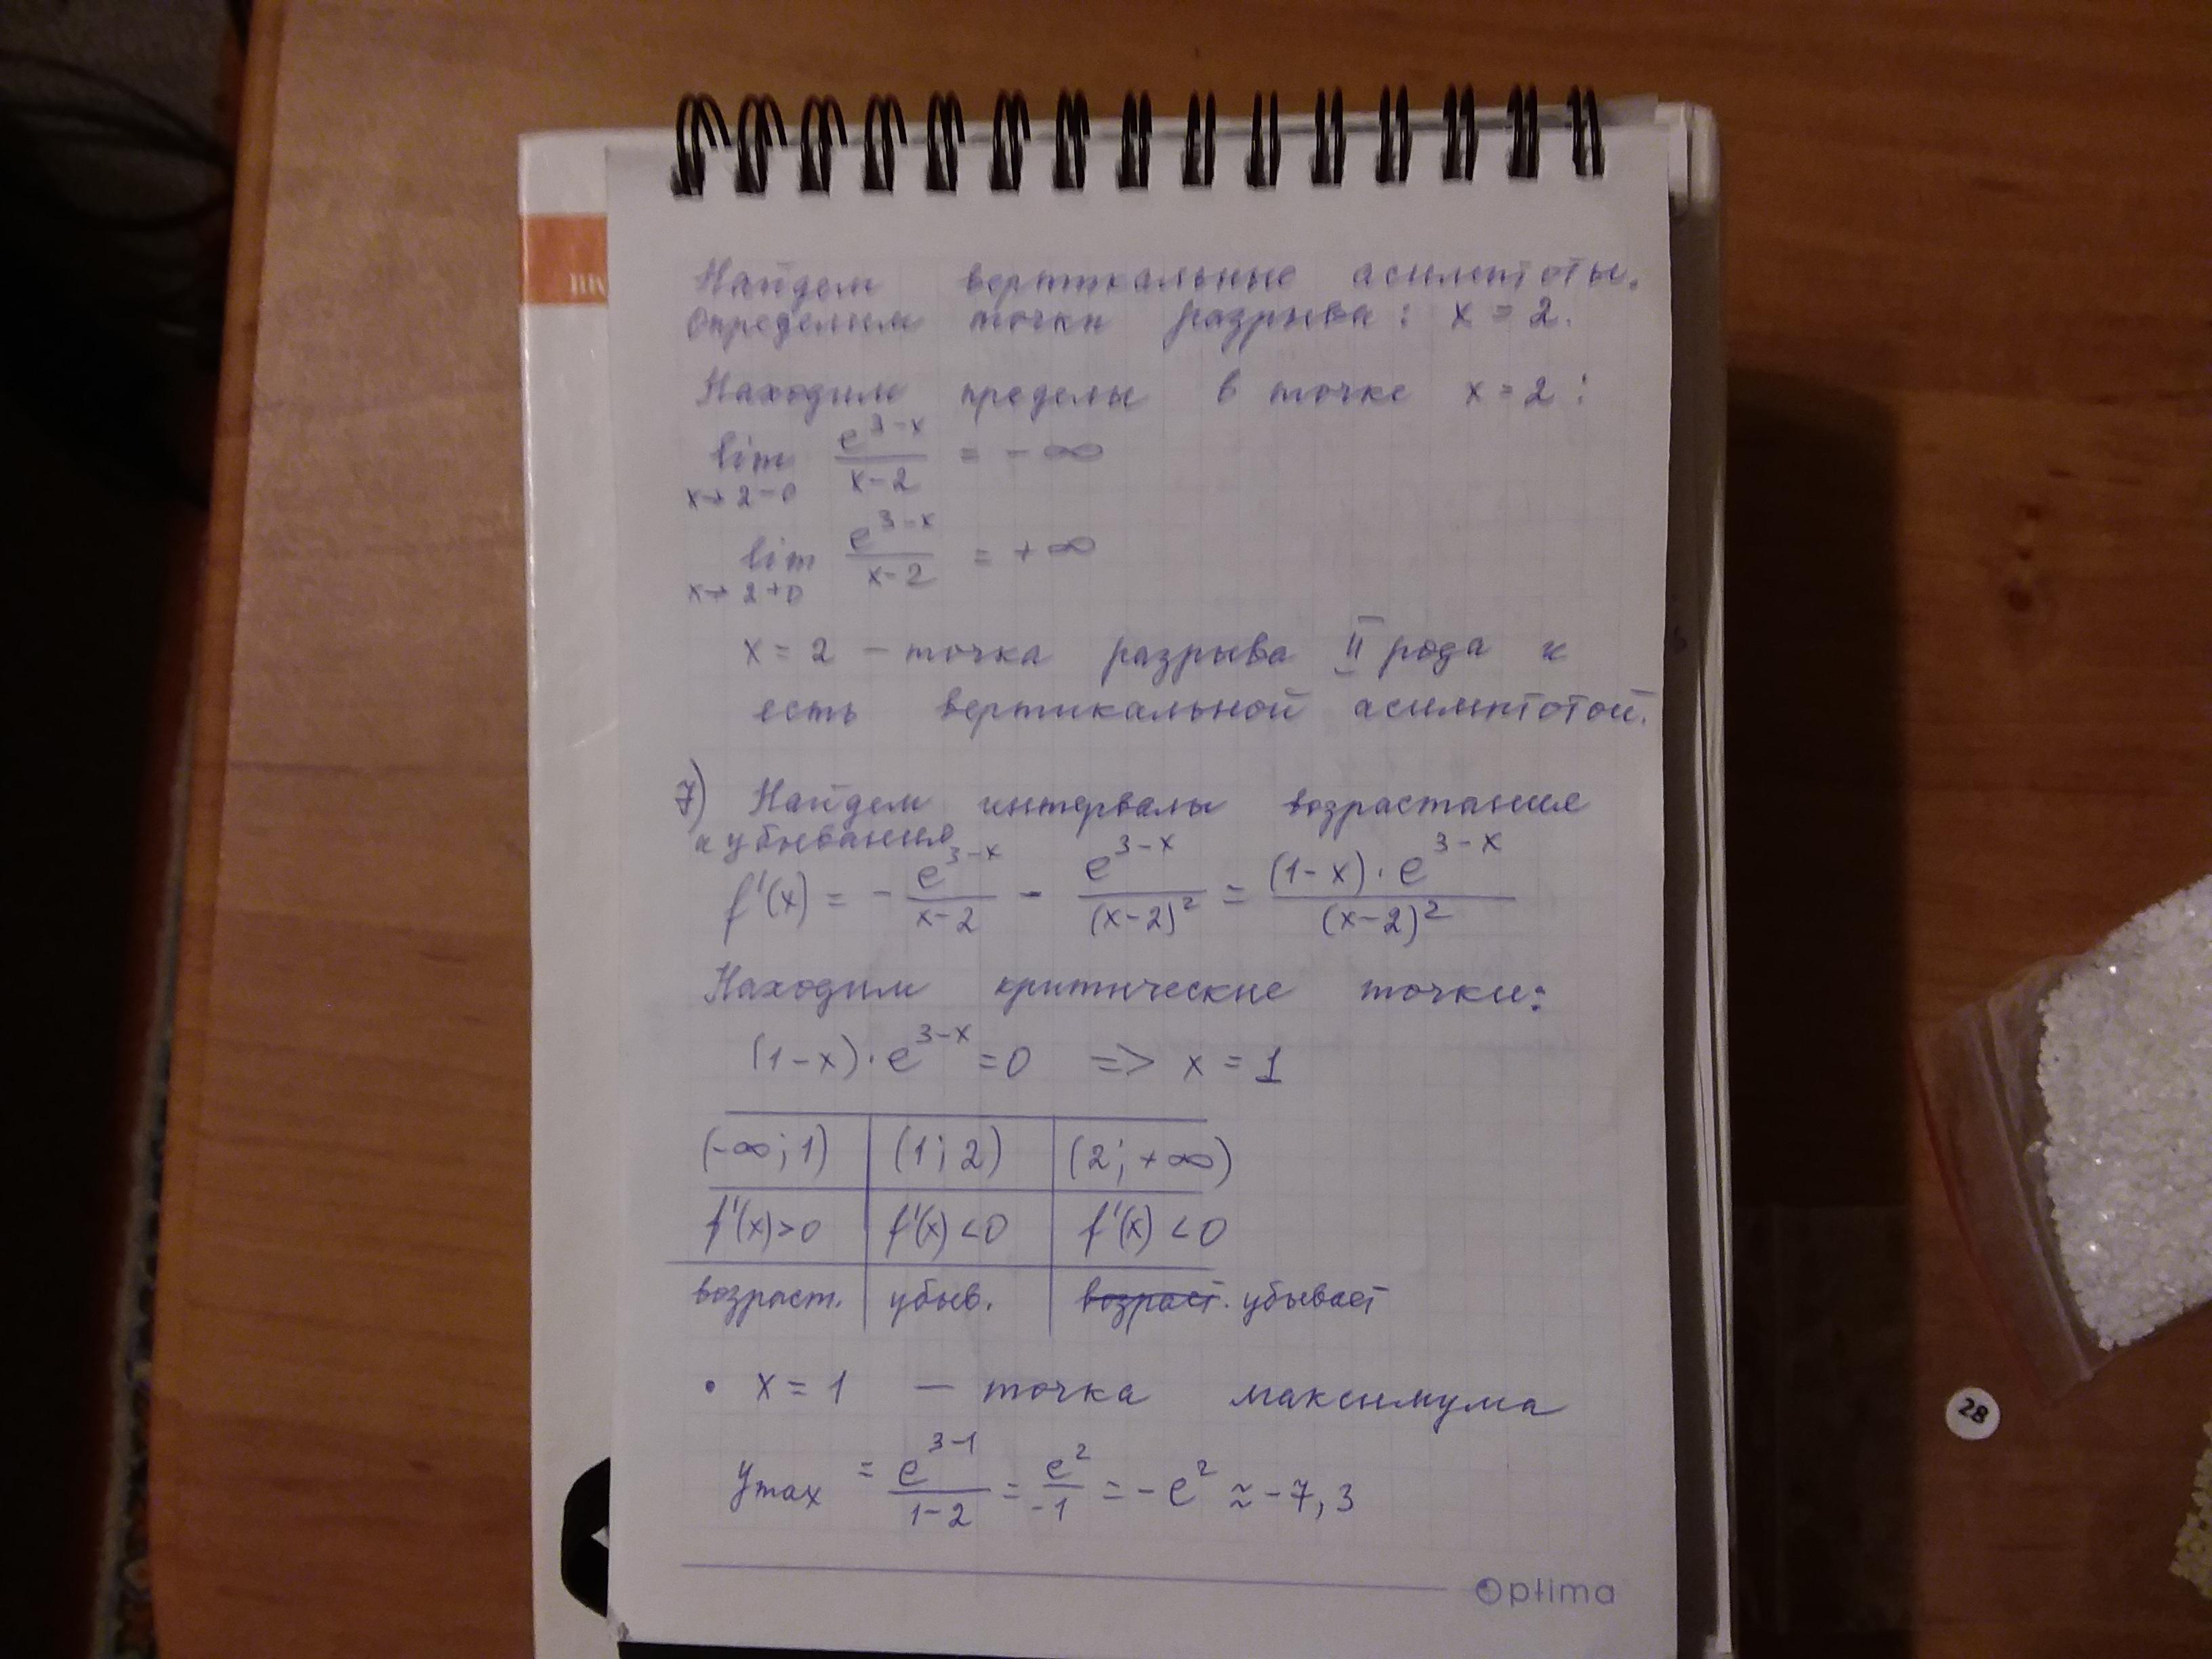 Найдем вертикальные асимптоты.
Определим точки разрыва: x = 2.
Находим пределы в точке x = 2:
lim x→2-0 e^(3-x)/(x-2) = -∞
lim x→2+0 e^(3-x)/(x-2) = +∞
x = 2 – точка разрыва II рода и
есть вертикальной асимптотой.
7) Найдем интервалы возрастания
и убывания
f'(x) = - e^(3-x)/(x-2) - e^(3-x)/(x-2)² = (1-x)·e^(3-x)/(x-2)²
Находим критические точки:
(1-x)·e^(3-x) = 0 => x = 1
(-∞; 1) (1; 2) (2; +∞)
f'(x)>0 f'(x)<0 f'(x)<0
возраст. убыв. возраст. убывает
• x = 1 – точка максимума
y max = e^(3-1)/(1-2) = e²/-1 = -e² ≈ -7,3
Optima
28